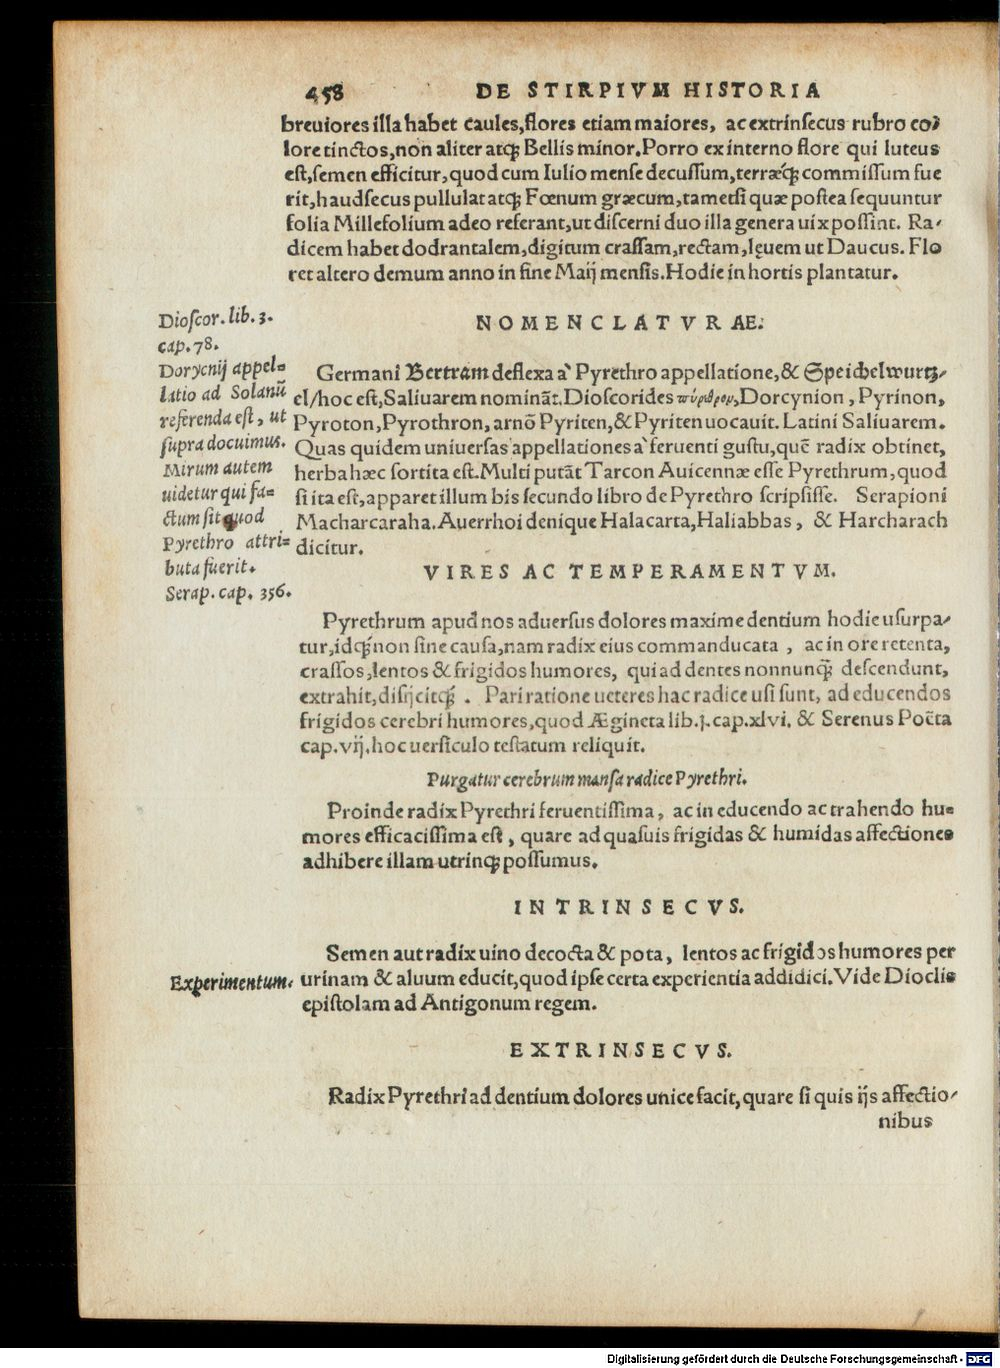 458 DE STIRPIVM HISTORIA
breuiores illa habet caules, flores etiam maiores, ac extrinsecus rubro co/
lore tinctos, non aliter atq; Bellis minor. Porro ex interno flore qui luteus
est, semen efficitur, quod cum Iulio mense decussum, terræq́; commissum fue
rit, haud secus pullulat atq; Fœnum græcum, tametsi quæ postea sequuntur
folia Millefolium adeo referant, ut discerni duo illa genera uix possint. Ra/
dicem habet dodrantalem, digitum crassam, rectam, lęuem ut Daucus. Flo
ret altero demum anno in fine Maij mensis. Hodie in hortis plantatur.
NOMENCLATVRAE.
Dioscor. lib. 3.
cap. 78.
Dorycnij appel=
latio ad Solanũ
referenda est, ut
supra docuimus.
Mirum autem
uidetur qui fa=
ctum sit quod
Pyrethro attri=
buta fuerit.
Serap. cap. 356.
Germani Bertram deflexa à Pyrethro appellatione, & Speichelwurtz/
el/hoc est, Saliuarem nominãt. Dioscorides πύρεθρον, Dorcynion, Pyrinon,
Pyroton, Pyrothron, arnõ Pyriten, & Pyriten uocauit. Latini Saliuarem.
Quas quidem uniuersas appellationes à feruenti gustu, quẽ radix obtinet,
herba hæc sortita est. Multi putãt Tarcon Auicennæ esse Pyrethrum, quod
si ita est, apparet illum bis secundo libro de Pyrethro scripsisse. Serapioni
Macharcaraha. Auerrhoi denique Halacarta, Haliabbas, & Harcharach
dicitur.
VIRES AC TEMPERAMENTVM.
Pyrethrum apud nos aduersus dolores maxime dentium hodie usurpa/
tur, idq́; non sine causa, nam radix eius commanducata, ac in ore retenta,
crassos, lentos & frigidos humores, qui ad dentes nonnunq̃; descendunt,
extrahit, disijcitq́;. Pari ratione ueteres hac radice usi sunt, ad educendos
frigidos cerebri humores, quod Ægineta lib. j. cap. xlvi. & Serenus Poẽta
cap. vij. hoc uersiculo testatum reliquit.
Purgatur cerebrum mansa radice Pyrethri.
Proinde radix Pyrethri feruentissima, ac in educendo ac trahendo hu=
mores efficacissima est, quare ad quasuis frigidas & humidas affectiones
adhibere illam utrinq; possumus.
INTRINSECVS.
Semen aut radix uino decocta & pota, lentos ac frigidos humores per
Experimentum. urinam & aluum educit, quod ipse certa experientia addidici. Vide Dioclis
epistolam ad Antigonum regem.
EXTRINSECVS.
Radix Pyrethri ad dentium dolores unice facit, quare si quis ijs affectio/
nibus
Digitalisierung gefördert durch die Deutsche Forschungsgemeinschaft - DFG